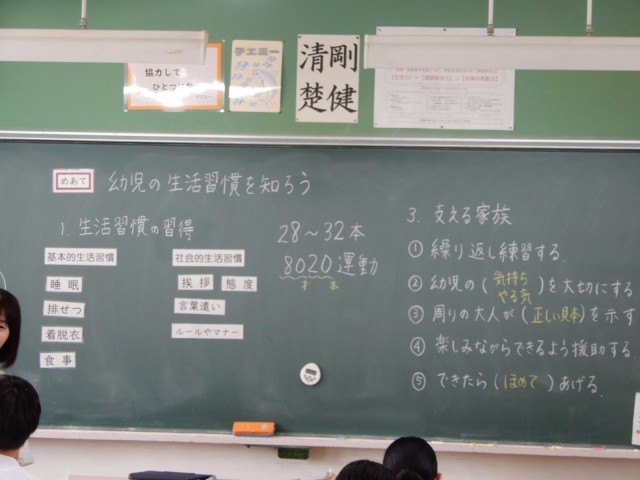 協力して
ひとつに
チエミー
清剛
楚健
めあて
幼児の生活習慣を知ろう
1. 生活習慣の習得
基本的生活習慣
睡眠
排せつ
着脱衣
食事
社会的生活習慣
挨拶 態度
言葉遣い
ルールやマナー
28～32本
8020運動
才 本
3. 支える家族
① 繰り返し練習する.
② 幼児の(気持ち
やる気)を大切にする
③ 周りの大人が(正しい見本)を示す
④ 楽しみながらできるよう援助する
⑤ できたら(ほめて)あげる.